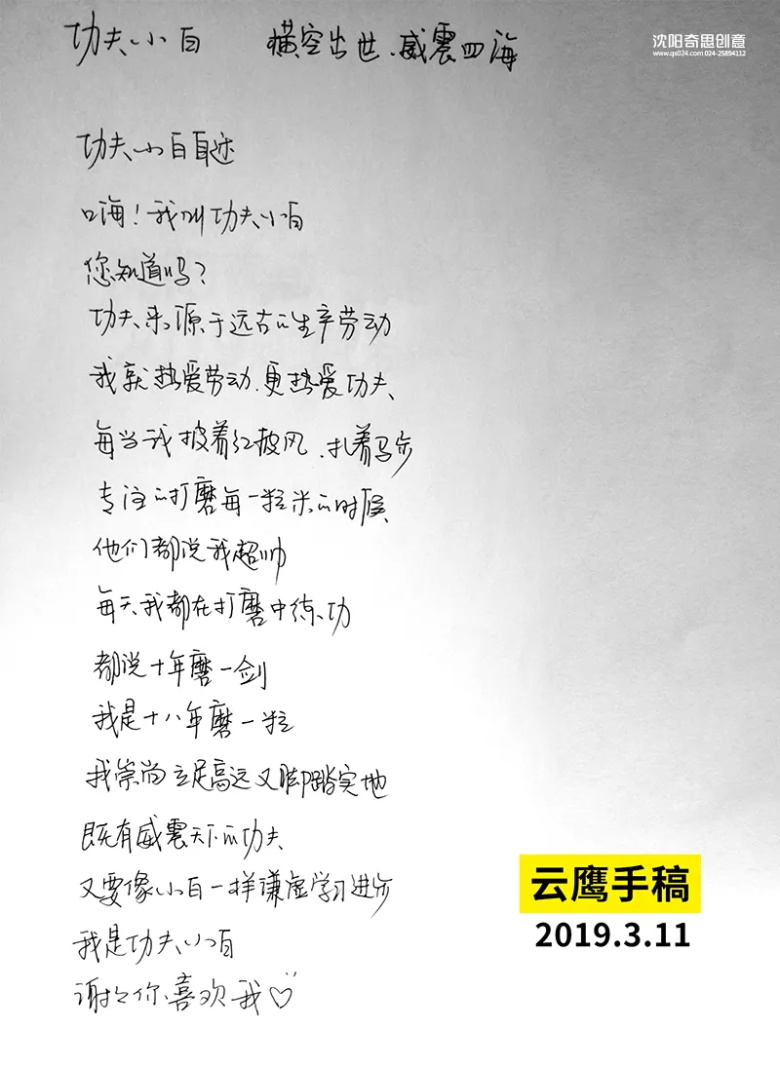 功夫小白　横空出世、威震四海
沈阳奇思创意
www.qs024.com 024-25894112
功夫小白自述
嗨！我叫功夫小白
您知道吗？
功夫来源于远古的生辛劳动
我就热爱劳动、更热爱功夫、
每当我披着红披风、扎着马步
专注的打磨每一粒米的时候、
他们都说我超帅
每天我都在打磨中练功
都说十年磨一剑
我是十八年磨一粒
我崇尚立足高远又脚踏实地
既有威震天下的功夫、
又要像小白一样谦虚学习进步
我是功夫小白
谢谢你喜欢我♡
云鹰手稿
2019.3.11